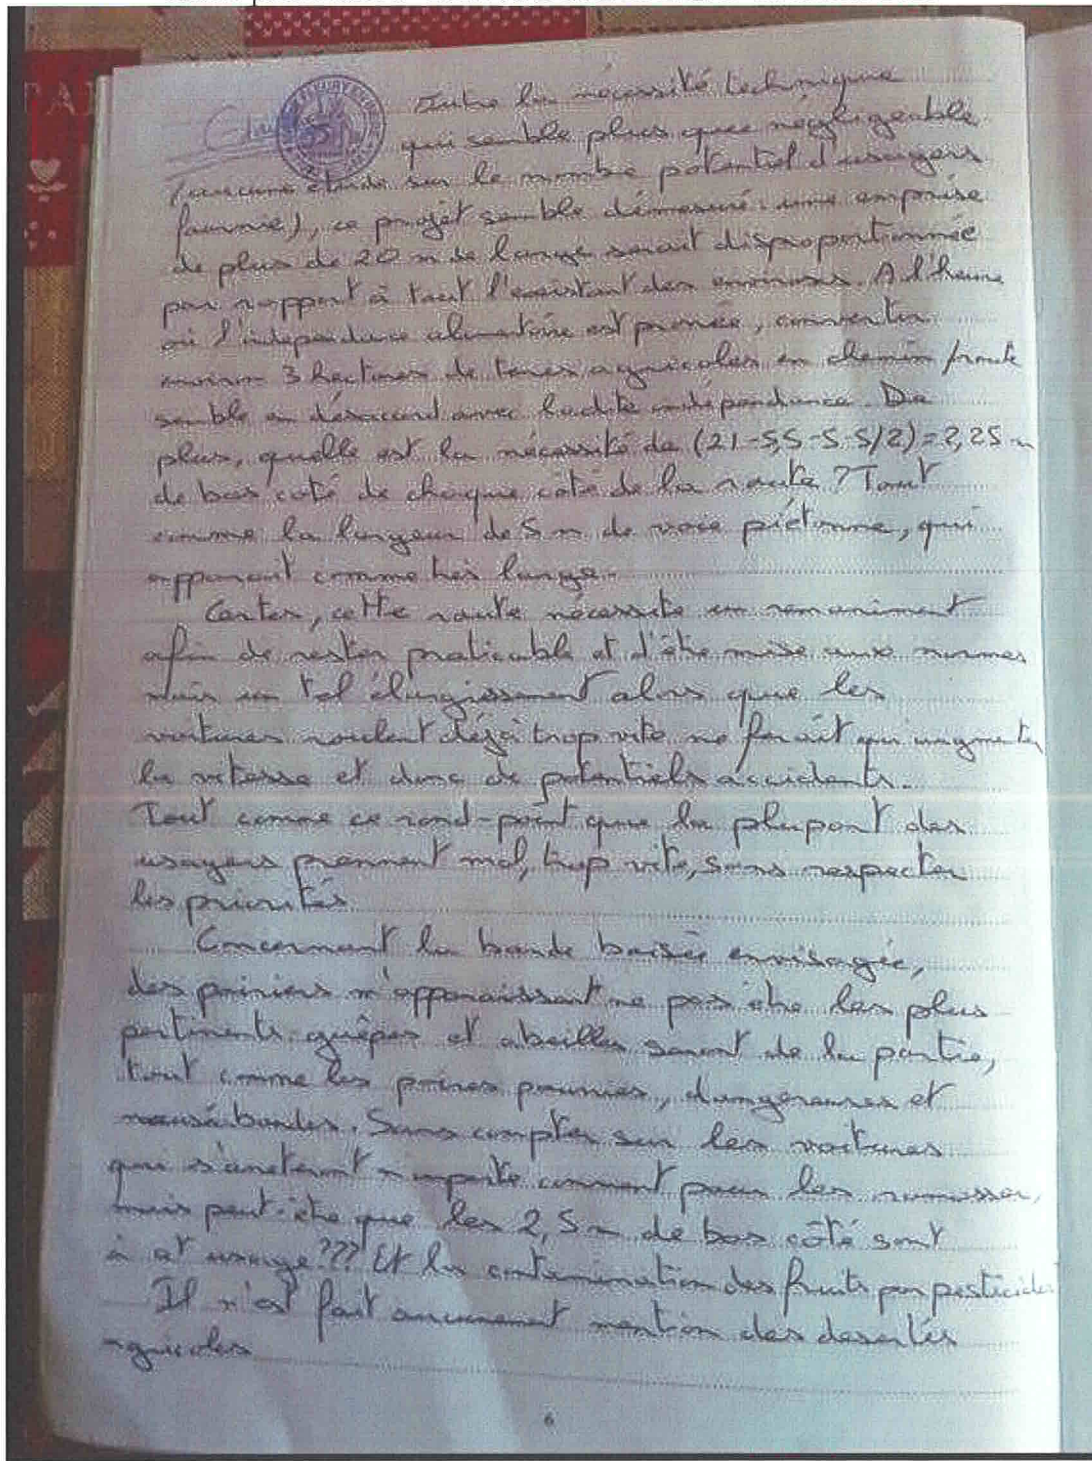 Outre la nécessité technique
qui semble plus que négligeable
(aucune étude sur le nombre potentiel d'usagers
fournie), ce projet semble démesuré : une emprise
de plus de 20 m de large serait disproportionnée
par rapport à tout l'existant des environs. A l'heure
où l'indépendance alimentaire est pronée, convertir
environ 3 hectares de terres agricoles en chemin/route
semble en désaccord avec ladite indépendance. De
plus, quelle est la nécessité de (21-5,5-5-5/2)=2,25 m
de bas côté de chaque côté de la route ? Tout
comme la largeur de 5 m de voie piétonne, qui
apparait comme très large.
Certes, cette route nécessite un remaniment
afin de rester praticable et d'être mise aux normes
mais un tel élargissement alors que les
voitures roulent déjà trop vite ne ferait qu'augmenter
la vitesse et donc de potentiels accidents.
Tout comme ce rond-point que la plupart des
usagers prennent mal, trop vite, sans respecter
les priorités
Concernant la bande boisée envisagée,
des poiriers m'apparaissent ne pas être les plus
pertinents guêpes et abeilles seront de la partie,
tout comme les poires pourries, dangereuses et
nauséabondes. Sans compter sur les voitures
qui s'arrêteront n'importe comment pour les ramasser,
mais peut-être que les 2,5 m de bas côté sont
à cet usage ??? Et la contamination des fruits par pesticides
Il n'est fait aucunement mention des dessertes
agricoles
6